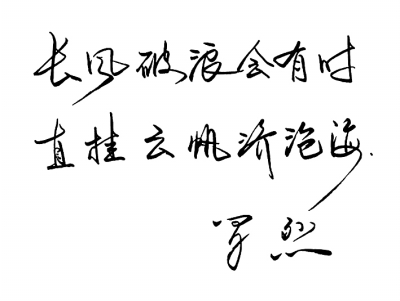 长风破浪会有时
直挂云帆济沧海.
罗烈